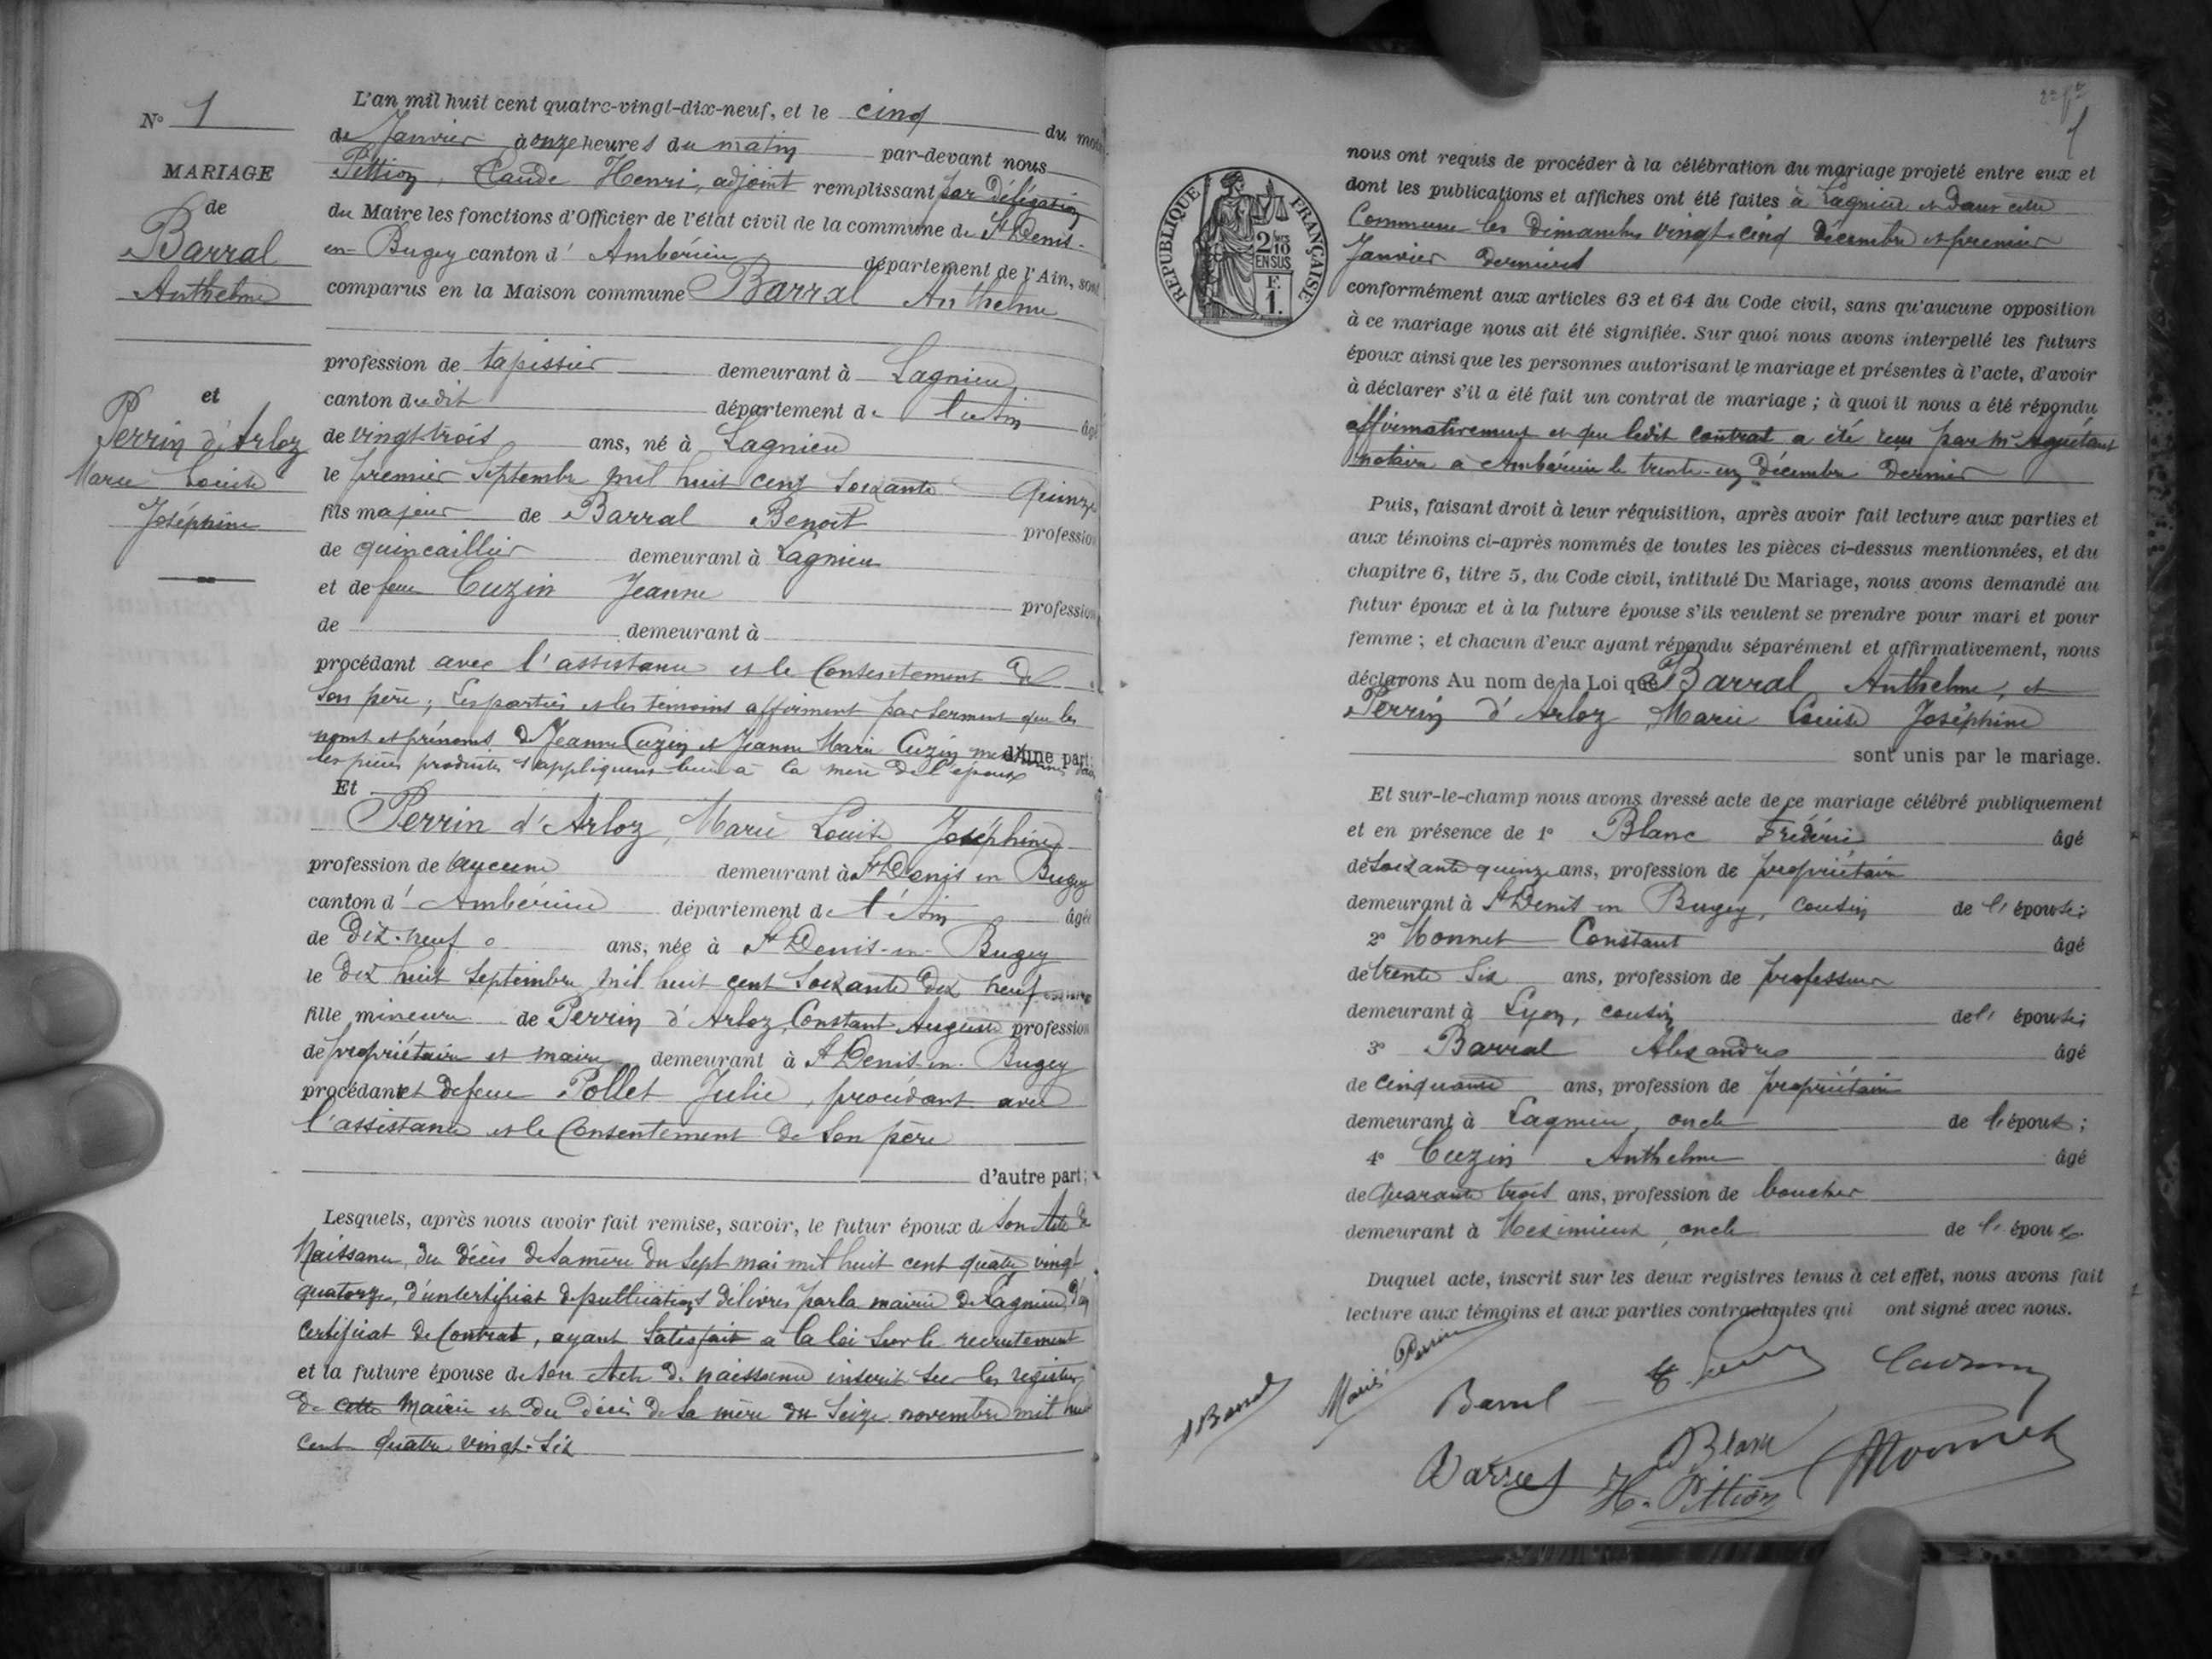 N° 1
MARIAGE
de
Barral
Anthelme
et
Perrin d'Arloz
Marie Louise
Joséphine
L'an mil huit cent quatre-vingt-dix-neuf, et le cinq du mois
de Janvier à onze heures du matin par-devant nous
Pittion, Claude Henri, adjoint remplissant par Délégation
du Maire les fonctions d'Officier de l'état civil de la commune de St Denis-
en-Bugey canton d'Ambérieu département de l'Ain, sont
comparus en la Maison commune Barral Anthelme
profession de tapissier demeurant à Lagnieu
canton dudit département de l'Ain âgé
de vingt-trois ans, né à Lagnieu
le premier Septembre mil huit cent soixante quinze
fils majeur de Barral Benoit profession
de quincaillier demeurant à Lagnieu
et de feue Cuzin Jeanne profession
de demeurant à
procédant avec l'assistance et le Consentement de
son père; Les parties et les témoins affirment par serment que les
noms et prénoms de Jeanne Cuzin et Jeanne Marie Cuzin d'une part;
les pièces produites s'appliquent bien à la mère de l'époux
Et
Perrin d'Arloz, Marie Louise Joséphine
profession de aucune demeurant à St Denis en Bugey
canton d'Ambérieu département de l'Ain âgée
de Dix-neuf ans, née à St Denis-en-Bugey
le dix huit Septembre mil huit cent soixante dix neuf
fille mineure de Perrin d'Arloz, Constant Auguste profession
de propriétaire et maire demeurant à St Denis-en-Bugey
procédant et de feue Pollet Julie, procédant avec
l'assistance et le Consentement de son père
d'autre part;
Lesquels, après nous avoir fait remise, savoir, le futur époux de son Acte de
Naissance, du décès de sa mère du sept mai mil huit cent quatre vingt
quatorze, d'un certificat de publications délivrés par la mairie de Lagnieu, d'un
certificat de Contrat, ayant satisfait à la loi sur le recrutement
et la future épouse de son Acte de naissance inscrit sur les registres
de cette Mairie et du décès de sa mère du seize novembre mil huit
cent quatre vingt-six
1
RÉPUBLIQUE FRANÇAISE
2 10
EN SUS
F.
1.
nous ont requis de procéder à la célébration du mariage projeté entre eux et
dont les publications et affiches ont été faites à Lagnieu et dans cette
Commune les Dimanches vingt-cinq décembre et premier
Janvier derniers
conformément aux articles 63 et 64 du Code civil, sans qu'aucune opposition
à ce mariage nous ait été signifiée. Sur quoi nous avons interpellé les futurs
époux ainsi que les personnes autorisant le mariage et présentes à l'acte, d'avoir
à déclarer s'il a été fait un contrat de mariage ; à quoi il nous a été répondu
affirmativement et que ledit contrat a été reçu par Me Aguétant
notaire à Ambérieu le trente-un décembre dernier
Puis, faisant droit à leur réquisition, après avoir fait lecture aux parties et
aux témoins ci-après nommés de toutes les pièces ci-dessus mentionnées, et du
chapitre 6, titre 5, du Code civil, intitulé Du Mariage, nous avons demandé au
futur époux et à la future épouse s'ils veulent se prendre pour mari et pour
femme ; et chacun d'eux ayant répondu séparément et affirmativement, nous
déclarons Au nom de la Loi que Barral Anthelme, et
Perrin d'Arloz Marie Louise Joséphine
sont unis par le mariage.
Et sur-le-champ nous avons dressé acte de ce mariage célébré publiquement
et en présence de 1° Blanc Frédéric âgé
de soixante quinze ans, profession de propriétaire
demeurant à St Denis en Bugey, cousin de l'épouse;
2° Monnet Constant âgé
de trente six ans, profession de professeur
demeurant à Lyon, cousin de l'épouse;
3° Barral Alexandre âgé
de cinquante ans, profession de propriétaire
demeurant à Lagnieu, oncle de l'époux;
4° Cuzin Anthelme âgé
de quarante trois ans, profession de boucher
demeurant à Meximieux, oncle de l'époux.
Duquel acte, inscrit sur les deux registres tenus à cet effet, nous avons fait
lecture aux témoins et aux parties contractantes qui ont signé avec nous.
A Barral Marie Perrin Barral
Barral Blanc Monnet
H. Pittion